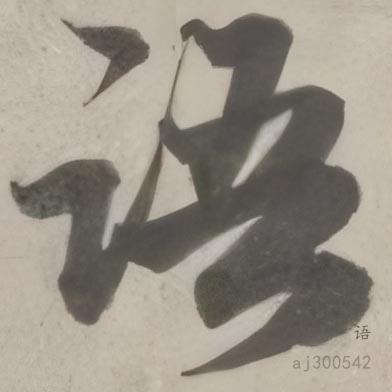 语
语
aj300542